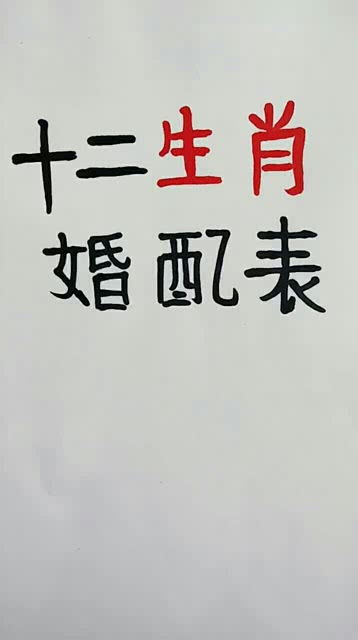 十二生肖
婚配表